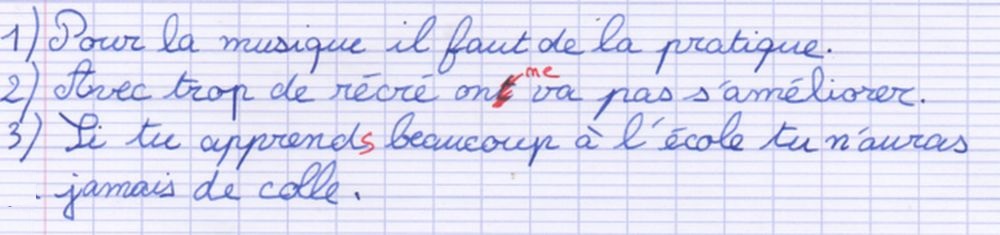 1) Pour la musique il faut de la pratique.
2) Avec trop de récré on ne va pas s'améliorer.
3) Si tu apprends beaucoup à l'école tu n'auras
jamais de colle.